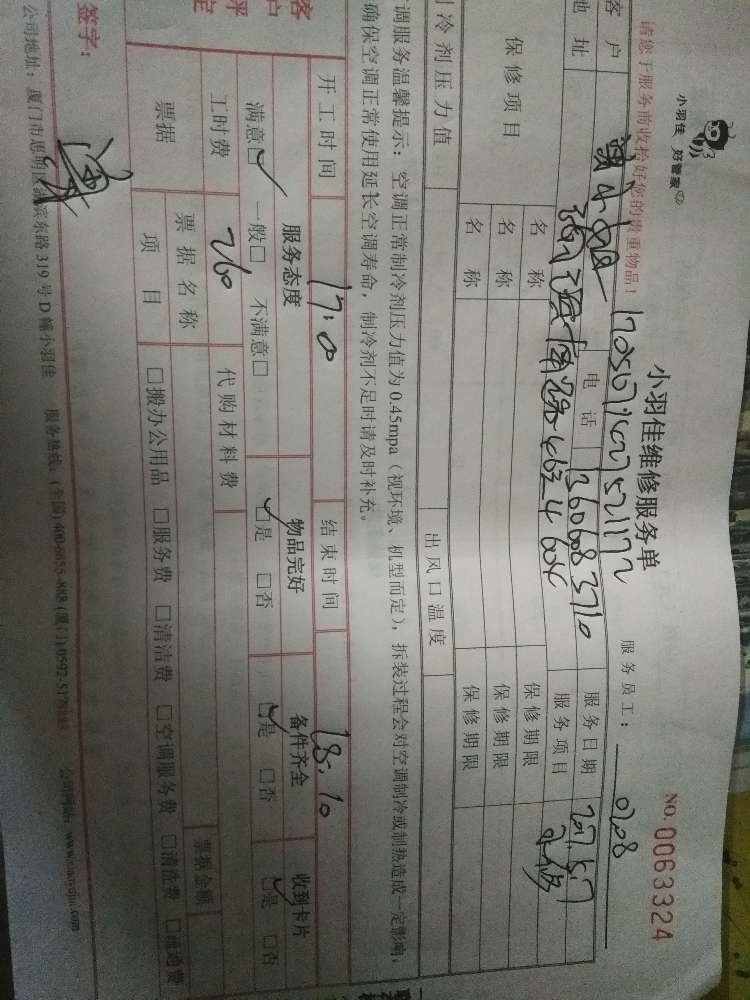 小羽佳 好管家
小羽佳维修服务单
NO. 0063324
请您于服务前收拾好您的贵重物品!
服务员工: 0208
客户
电话 13606083710
服务日期 2017.5.7
地址
服务项目
保修项目 名称 保修期限
名称 保修期限
名称 保修期限
制冷剂压力值 出风口温度
调服务温馨提示: 空调正常制冷剂压力值为 0.45mpa (视环境、机型而定), 拆装过程会对空调制冷或制热造成一定影响,
确保空调正常使用延长空调寿命, 制冷剂不足时请及时补充。
开工时间 17:0 结束时间 18:10
服务态度 物品完好 备件齐全 收到卡片
满意☑ 一般□ 不满意□ ☑是 □否 ☑是 □否 ☑是 □否
工时费 260 代购材料费
票据 票据名称 票据金额
项目 □搬办公用品 □服务费 □清洁费 □空调服务费 □清洗费 □疏通费
签字:
公司地址: 厦门市思明区湖滨东路 319 号 D 幢小羽佳 服务热线: (全国) 400-6055-888 (厦门) 0592-